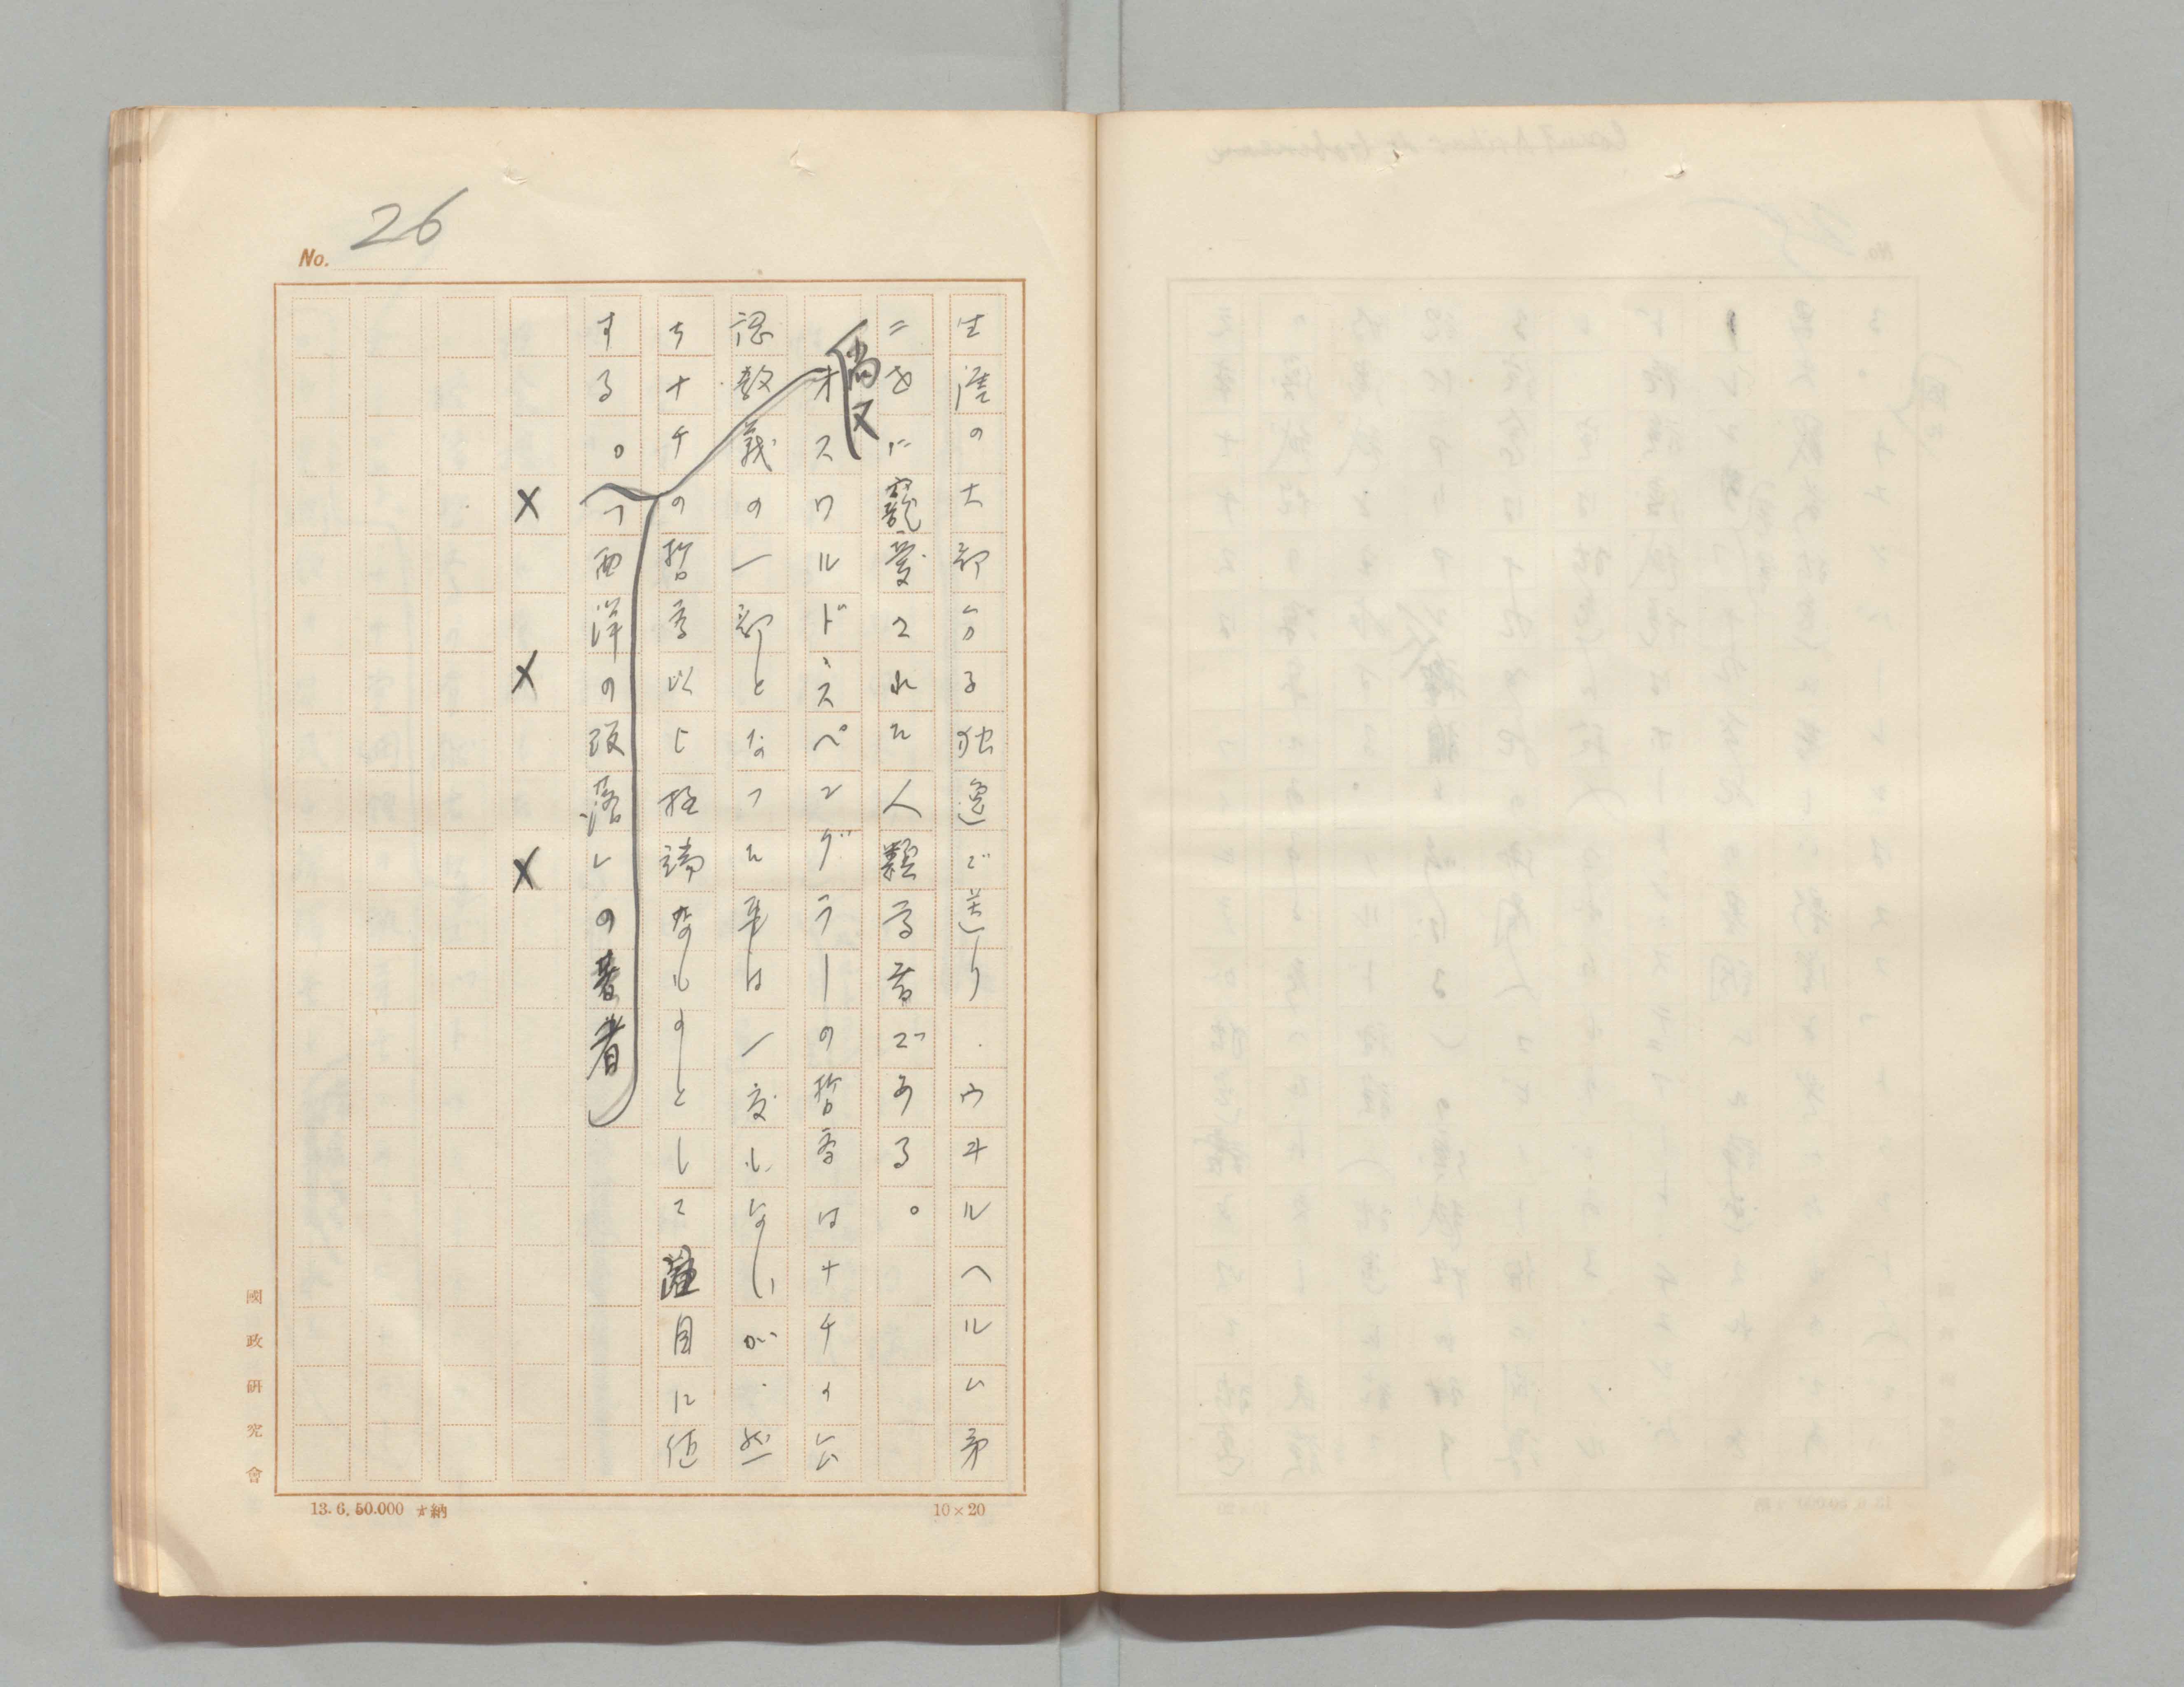 No. 26
生涯の大部分を独逸で送り、ウヰルヘルム第
二世に寵愛された人類学者である。
尚又
オスワルド・スペングラーの哲学はナチイ公
認教義の一部となつた事は一度もないが、然
もナチの哲学以上極端なものとして注目に値
する。「西洋の没落」の著者
× × ×
國政研究會
13.6.50.000 納
10×20